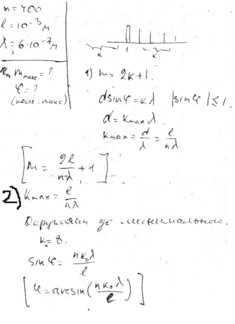 n = 400
l = 10⁻³ м
λ = 6·10⁻⁷ м
m max = ?
φ = ?
(макс.)
к
к
1) m = 2k+1.
d sinφ = kλ |sinφ| ≤ 1
d = kmax λ
kmax = d/λ = l/nλ
[m = 2l/nλ + 1]
2) kmax = l/nλ
Округляем до минимального.
k = 8.
sinφ = nk₀λ/l
[φ = arcsin(nk₀λ/l)]